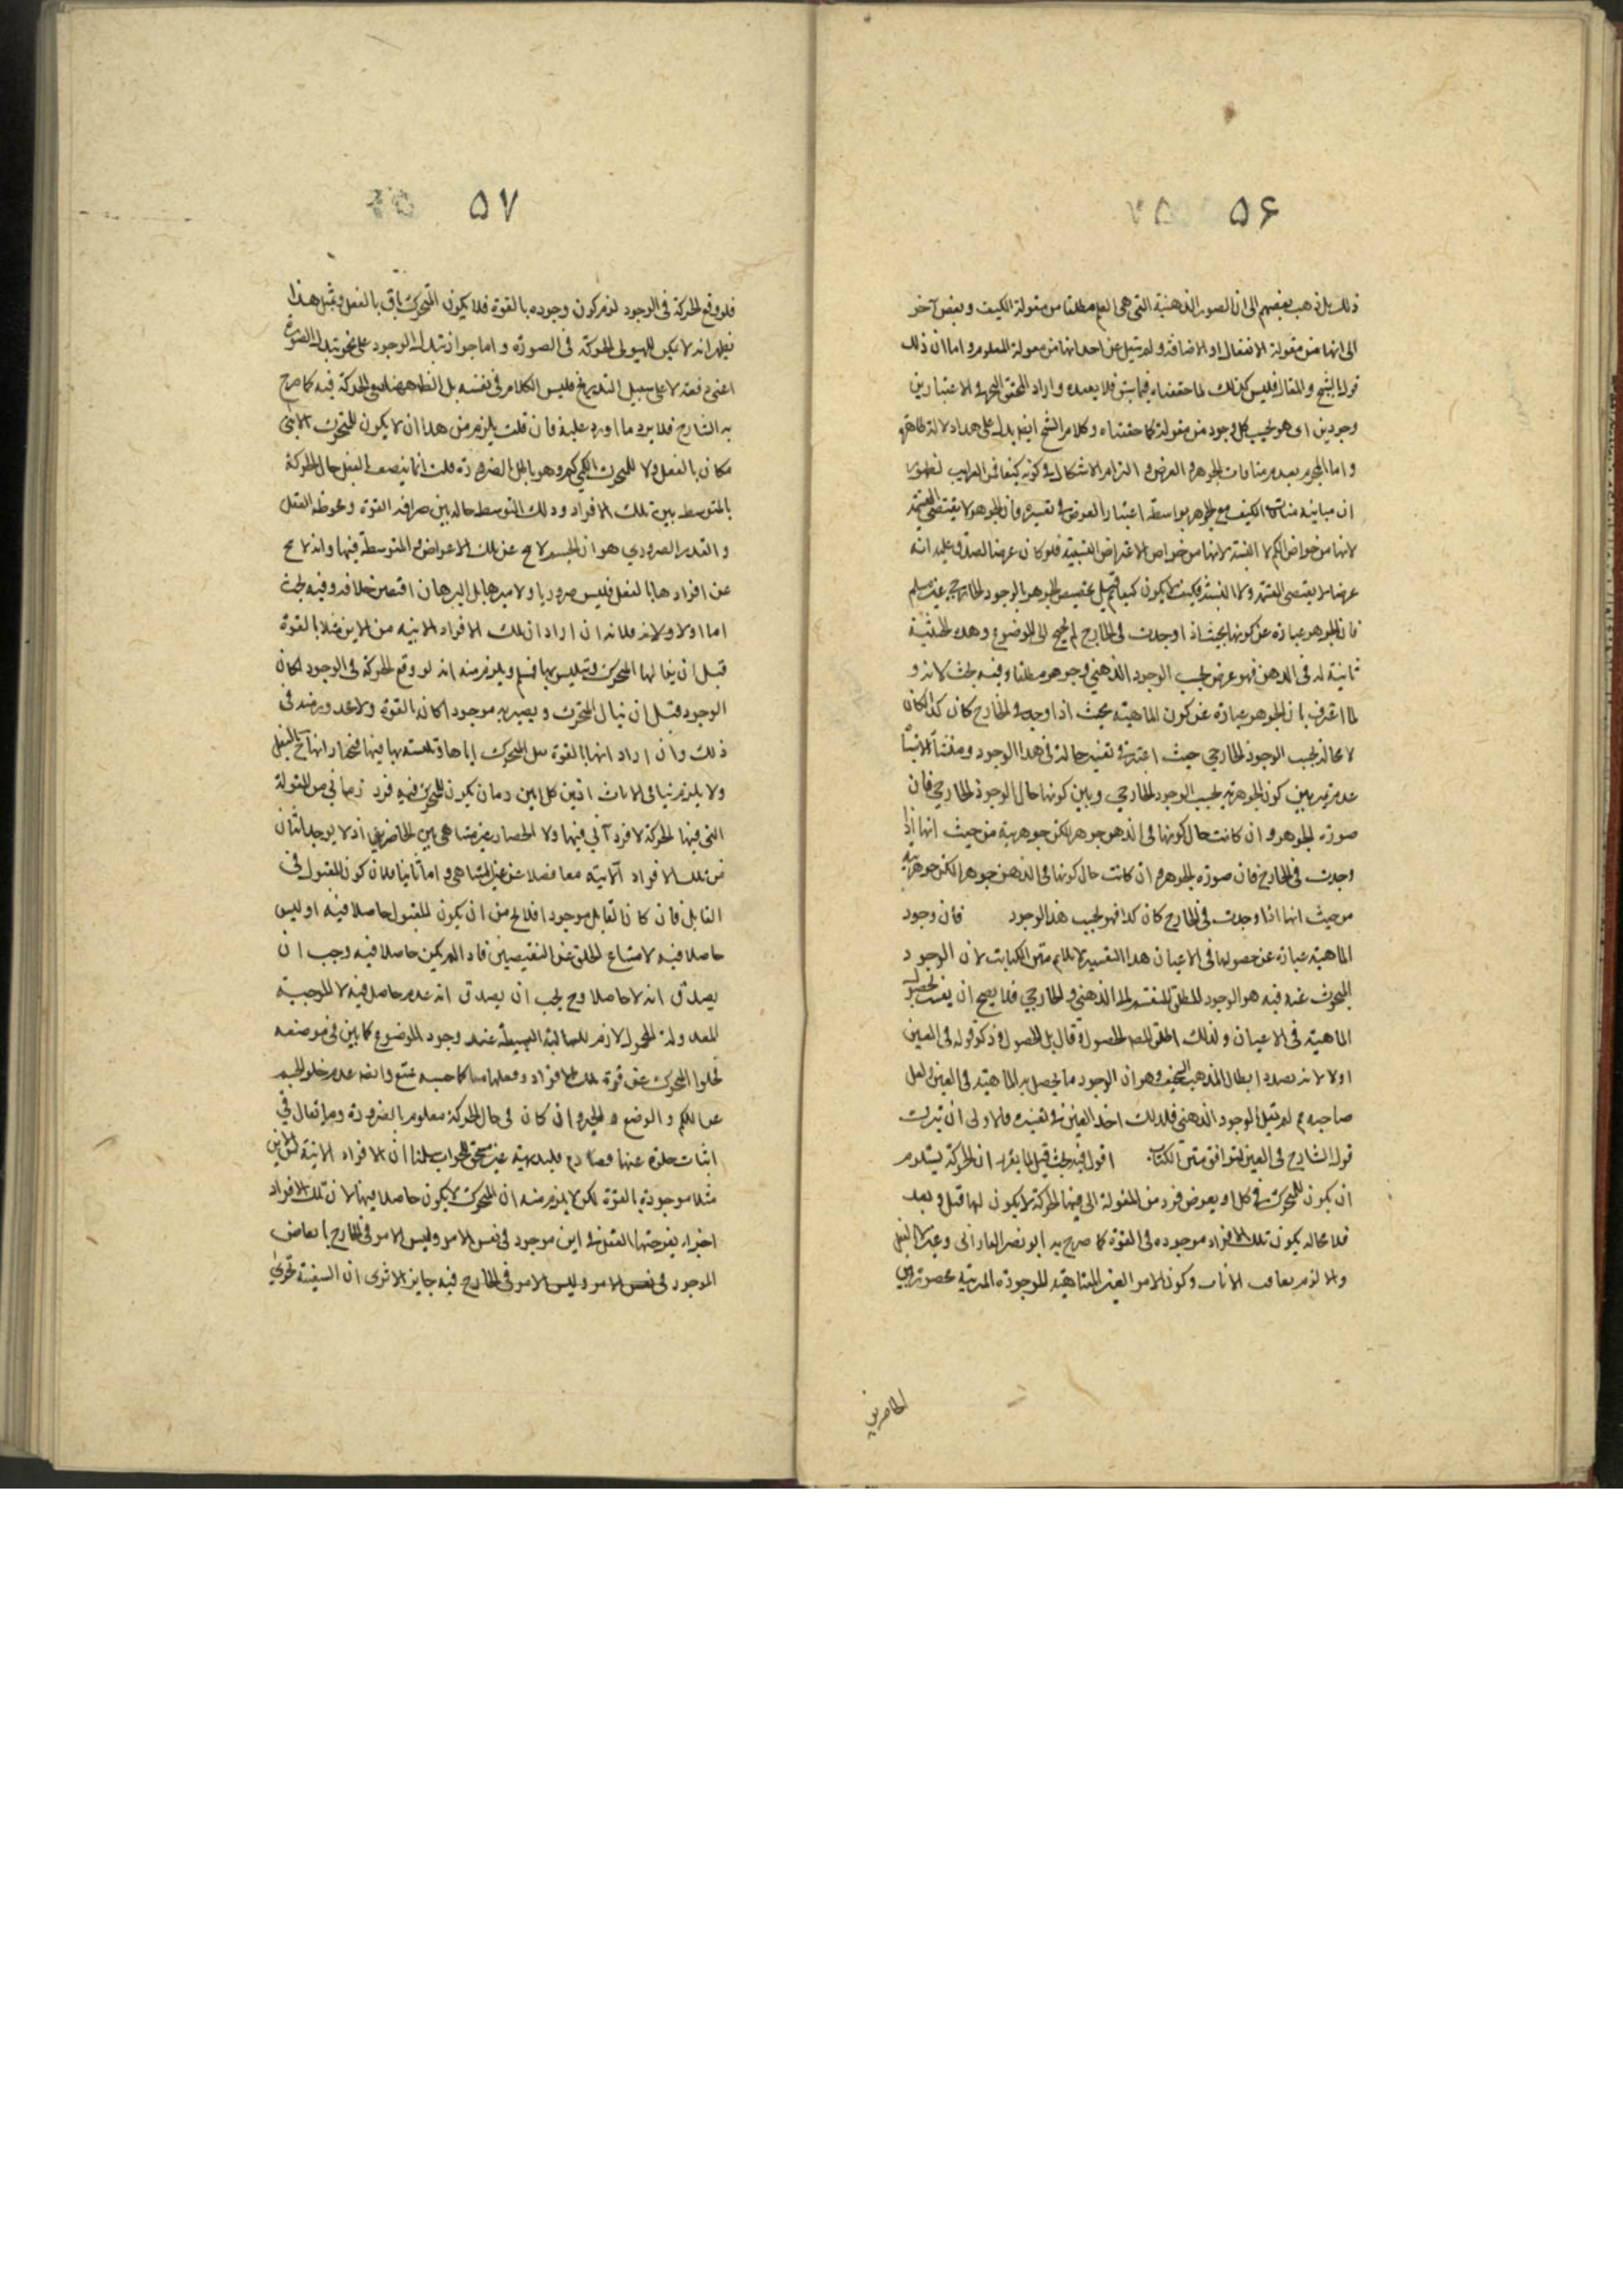 ۵۶
ذلك بل ذهب بعضهم الى ان الصور الذهنية التى هى العلم مطلقا من مقولة الكيف و بعض آخر
الى انها من مقولة الانفعال او الاضافة و لم يقل عن احد انها من مقولة المعلوم و اما ان ذلك
قول الشيخ و الفارابى فليس كذلك لما حققناه فيما سبق فلا يعيده و اراد المحقق بالجهة الاعتبارين
وجودين اى هو بحسب كل وجود من مقولة كما حققناه و كلام الشيخ ايضا يدل على هذا دلالة ظاهرة
و اما الجزم بعدم منافات الجوهر و العرض و التزام الاشكال فى كونه كيفا فمن الغرايب لظهور
ان مباينة الكيف مع الجوهر بواسطة اعتبار العرض فى تفسيره فان الجوهر لا يقتضى القسمة
لانها من خواص الكم لا النسبة لانها من خواص الاعراض النسبية فلو كان عرضا لصدق عليه انه
عرض لا يقتضى القسمة و لا النسبة فكيف لا يكون كيفا قيل تخصيص الجوهر بالوجود الخارجى غير مسلم
فان الجوهر عبارة عن كونها بحيث اذا وجدت فى الخارج لم يحتج الى الموضوع و هذه الحيثية
ثابتة له فى الذهن فهو عرض بحسب الوجود الذهنى و جوهر مطلقا و فيه بحث لانه و
لما اعترف بان الجوهر عبارة عن كون الماهية بحيث اذا وجد فى الخارج كان كذا كان
لا محالة بحسب الوجود الخارجى حيث اعتبر فى تفسيره حالة فى هذا الوجود و منشأ الاشتباه
عدم تميز بين كون الجوهرية بحسب الوجود الخارجى و بين كونها حال الوجود الخارجى فان
صورة الجوهر و ان كانت حال كونها فى الذهن جوهر لكن جوهرية من حيث انها اذا
وجدت فى الخارج فان صورة الجوهر و ان كانت حال كونها فى الذهن جوهر الكن جوهرية
من حيث انها اذا وجدت فى الخارج كان كذا فهو بحسب هذا الوجود فان وجود
الماهية عبارة عن حصولها فى الاعيان هذا التفسير لا يلايم متن الكتاب لان الوجود
المبحوث عنه فيه هو الوجود المطلق المنقسم الى الذهنى و الخارجى فلا يصح ان يفسر بحصول
الماهية فى الاعيان و لذلك اطلق المص الحصول و قال بل الحصول و ذكر قوله فى العين
اولا لانه بصدد ابطال المذهب السخيف و هو ان الوجود ما يحصل به الماهية فى العين و لعل
صاحبه لم يقل بالوجود الذهنى فلذلك اخذ العين فى تفسيره فالاولى ان يترك
قول الشارح فى العين ليوافق متن الكتاب اقول فيه بحث قيل لما يقرر ان الحركة يستلزم
ان يكون للمتحرك فى كل ان يفرض فرد من المقولة التى فيها الحركة لا يكون لها قبل و بعد
فلا محالة يكون تلك الافراد موجوده فى القوة كما صرح به ابو نصر الفارابى و غيره لا بالفعل
و الا لزم تعاقب الانات و كون الامور الغير المتناهية الموجودة المرتبة محصورة بين
الحاضرين
۵۷
فلو وقع الحركة فى الوجود لزم كون وجوده بالقوة فلا يكون المتحرك باق بالفعل و بمثل هذا
يظهر انه لا يكون للهيولى الحركة فى الصورة و اما جواز تبدل الوجود على نحو تبدل الصورة
اعنى دفعة لا على سبيل التدريج فليس الكلام فى نفسه بل الظاهر نفى الحركة فيه كما صرح
به الشارح فلا يرد ما اورد عليه فان قلت يلزم من هذا ان لا يكون للمتحرك الاينى
مكان بالفعل و لا للمتحرك الكمى كم و هو باطل بالضرورة قلت انما يتصف بالفعل حال الحركة
بالتوسط بين تلك الافراد و ذلك التوسط حالة بين صرافة القوة و محوضة الفعل
و القدر الضرورى هو ان الجسم لا يخ عن تلك الاعراض و المتوسطة فيها و انه لا يخ
عن افرادها بالفعل فليس ضروريا و لا مبرهنا بل البرهان اقتضى خلافه و فيه بحث
اما اولا فلانه ان اراد ان تلك الافراد الاينية من الاين مثلا بالقوة
قبل ان ينالها المتحرك و يتلبس بها فمسلم و يلزم منه انه لو وقع الحركة فى الوجود لكان
الوجود قبل ان ينال المتحرك و يصير به موجودا كان بالقوة و لا محذور فى
ذلك و ان اراد انها بالقوة نيل المتحرك اياها و تلبسه بها فيها فنختار انها بالفعل
و لا يلزم تتالى الانات اذ بين كل اين زمان يكون للمتحرك فيه فرد زمانى من المقولة
التى فيها الحركة لا فرد آنى فيها و لا انحصار غير متناهى بين الحاضرين اذ لا يوجد اثنان
من تلك الافراد الآنية معا فضلا عن غير المتناهى و اما ثانيا فلان كون المقبول فى
القابل فان كان القابل موجودا فلا يخ من ان يكون المقبول حاصلا فيه او ليس
حاصلا فيه لامتناع الخلو عن النقيضين فاذا لم يكن حاصلا فيه وجب ان
يصدق انه لا حاصلا و ح يجب ان يصدق انه عدم حاصل فيه لا الموجبة
المعدولة المحمول لازم للسالبة البسيطة عند وجود الموضوع كما بين فى موضعه
فخلوا المتحرك عن قوة تلك الافراد و فعلها معا كما حسبه ممتنع و ايضا عدم خلو الجسم
عن الكم و الوضع و الحيز و ان كان فى حال الحركة معلوم بالضرورة و ما يقال فى
اثبات خلوه عنها مصادم للبديهة غير مستحق للجواب سلمنا ان الافراد الانية للاين
مثلا موجودة بالقوة لكن لا يلزم منه ان المتحرك لا يكون حاصلا فيها لان تلك الافراد
اجزاء يفرضها العقل فى اين موجود فى نفس الامر و ليس الامر فى الخارج ابعاض
الموجود فى نفس الامر و ليس الامر فى الخارج فيه جايز الا ترى ان السفينة تجرى